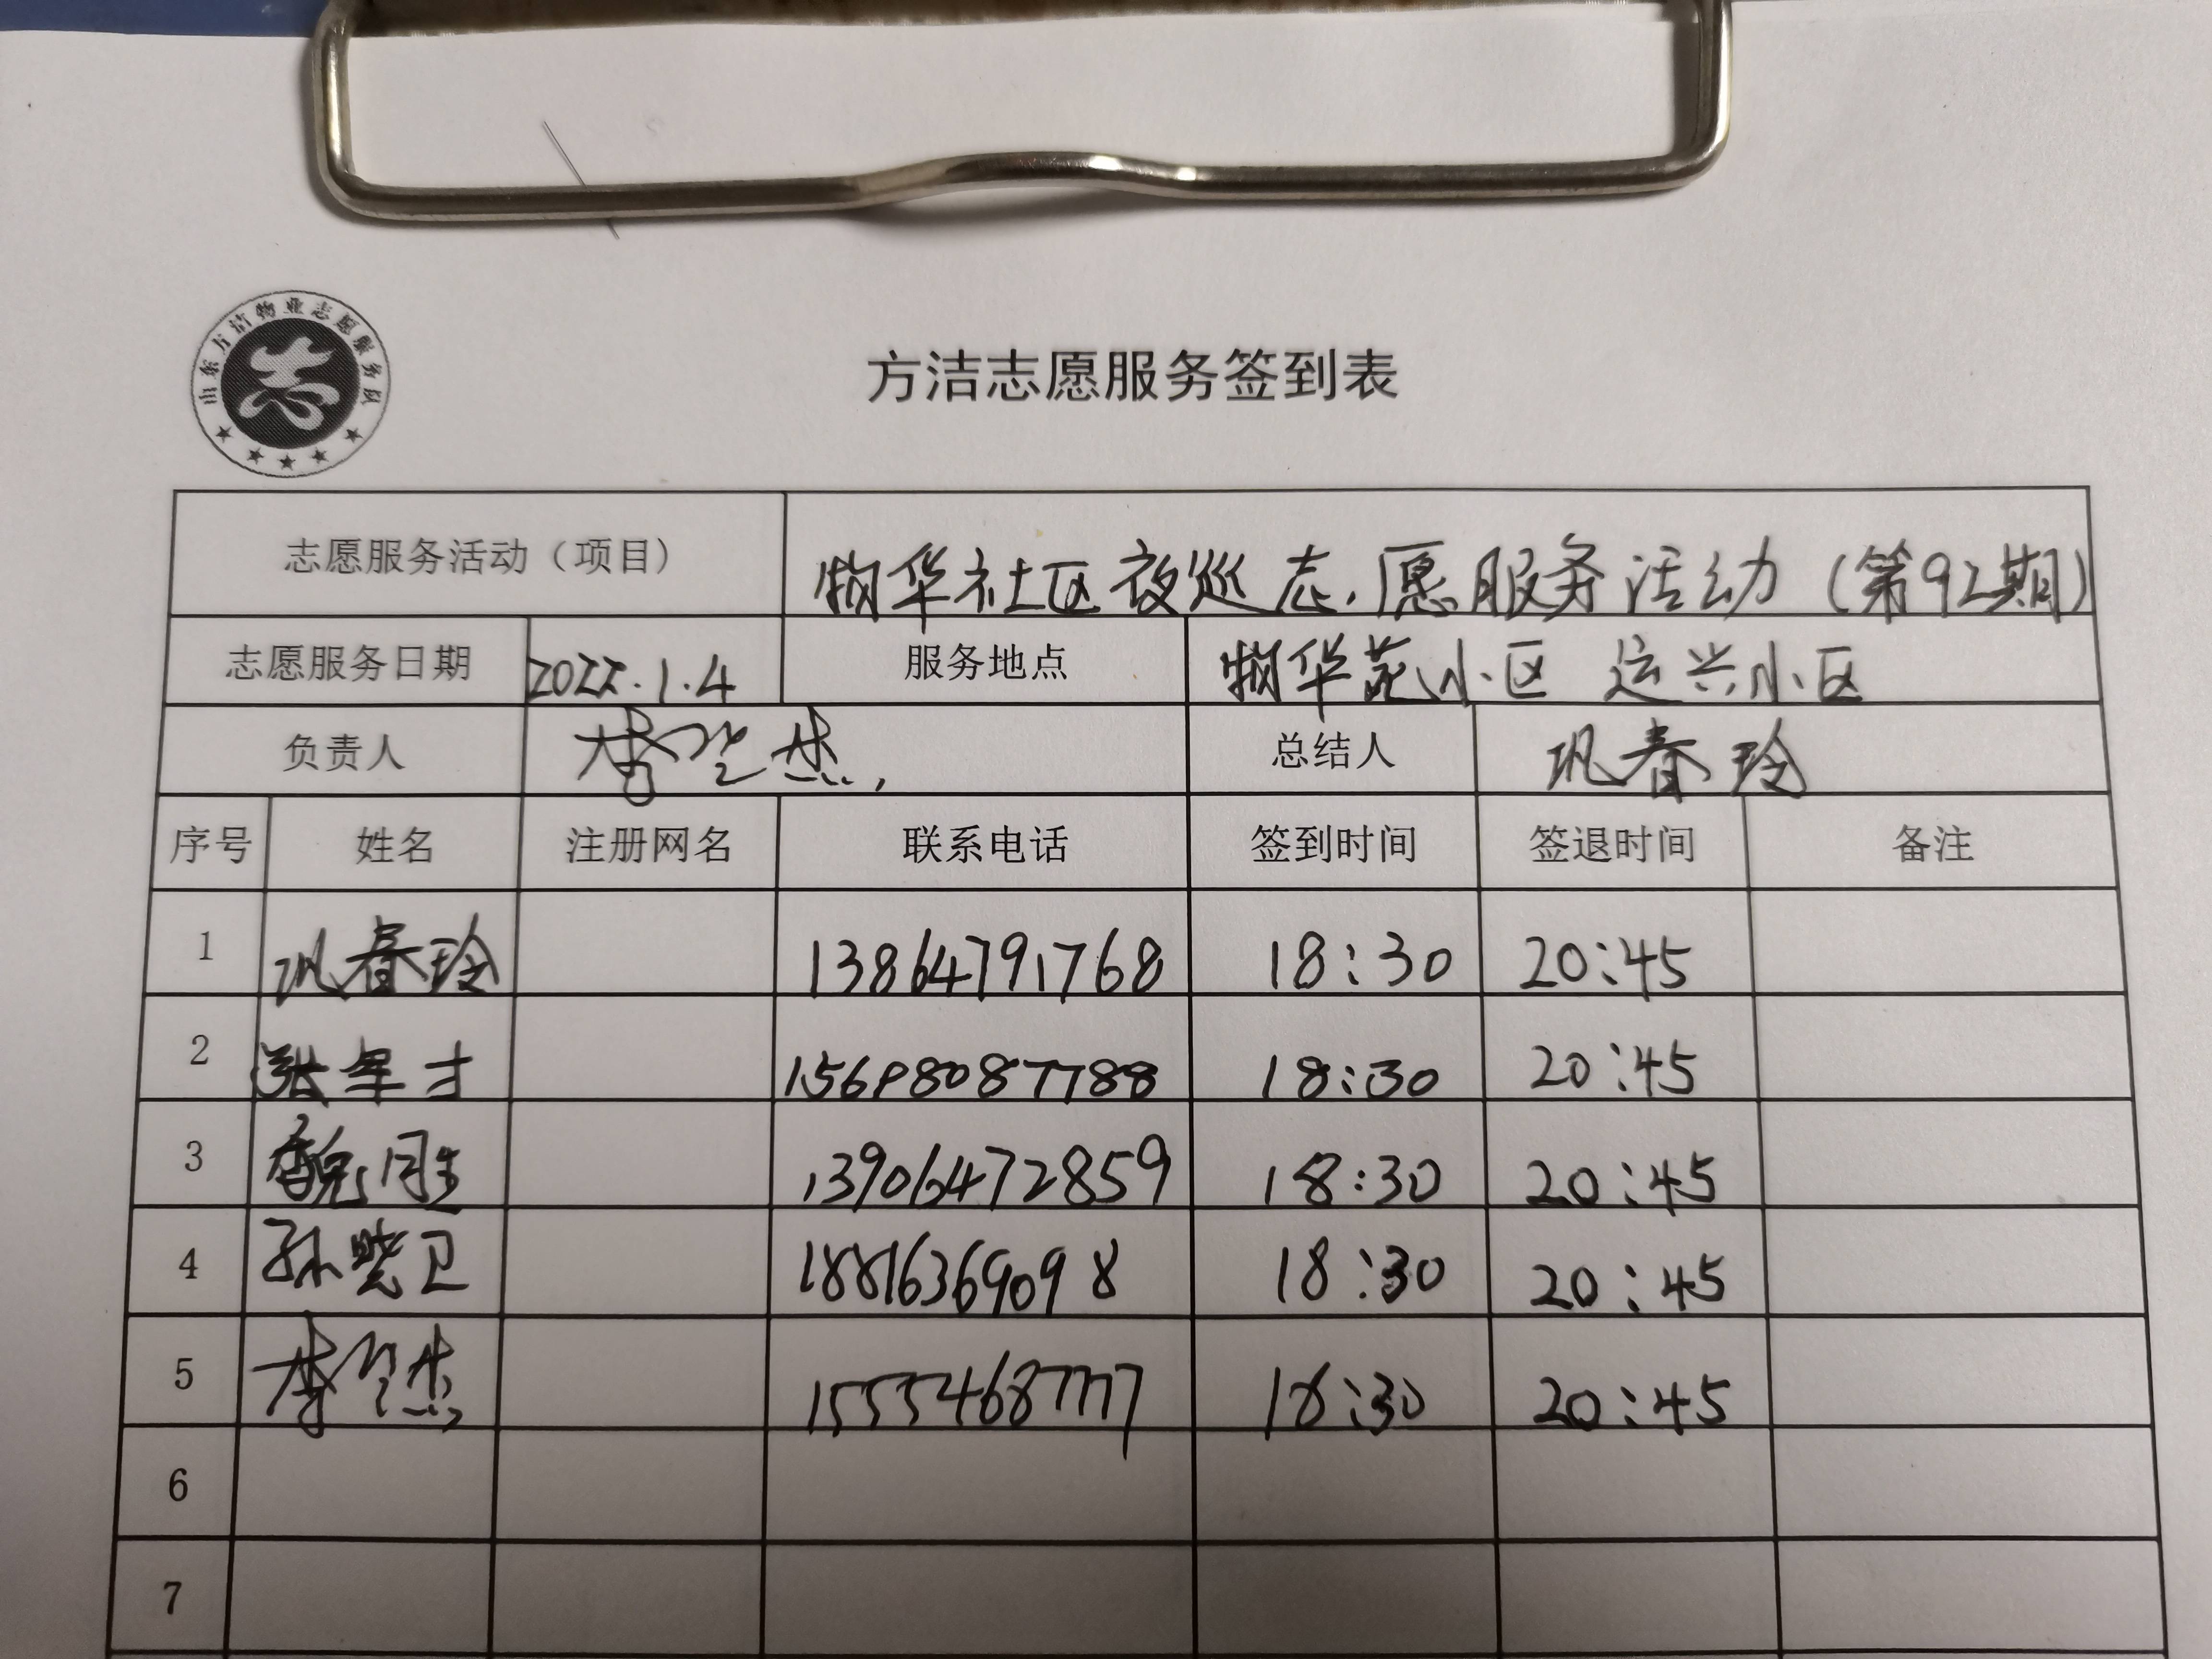 山东方洁物业志愿服务队
志
方洁志愿服务签到表
志愿服务活动（项目） 物华社区夜巡志愿服务活动（第92期）
志愿服务日期 2022.1.4 服务地点 物华苑小区 运兴小区
负责人 李 杰 总结人 巩春玲
序号 姓名 注册网名 联系电话 签到时间 签退时间 备注
1 巩春玲 13864791768 18:30 20:45
2 张军才 15698087788 18:30 20:45
3 魏 13906472859 18:30 20:45
4 孙晓卫 18816369098 18:30 20:45
5 李 杰 15554687777 18:30 20:45
6
7